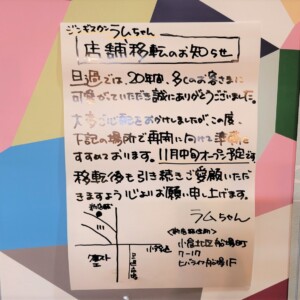 ジンギスカン ラムちゃん
店舗移転のお知らせ
旦過では、20年間、多くのお客さまに
可愛がっていただき誠にありがとうございました。
大変ご心配をおかけしましたがこの度、
下記の場所で再開に向けて準備を
すすめております。11月中旬オープン予定です
移転後も引き続きご愛顧いただ
きますよう心よりお願い申し上げます。
ラムちゃん
小倉北区船場町
7-17
船場1F